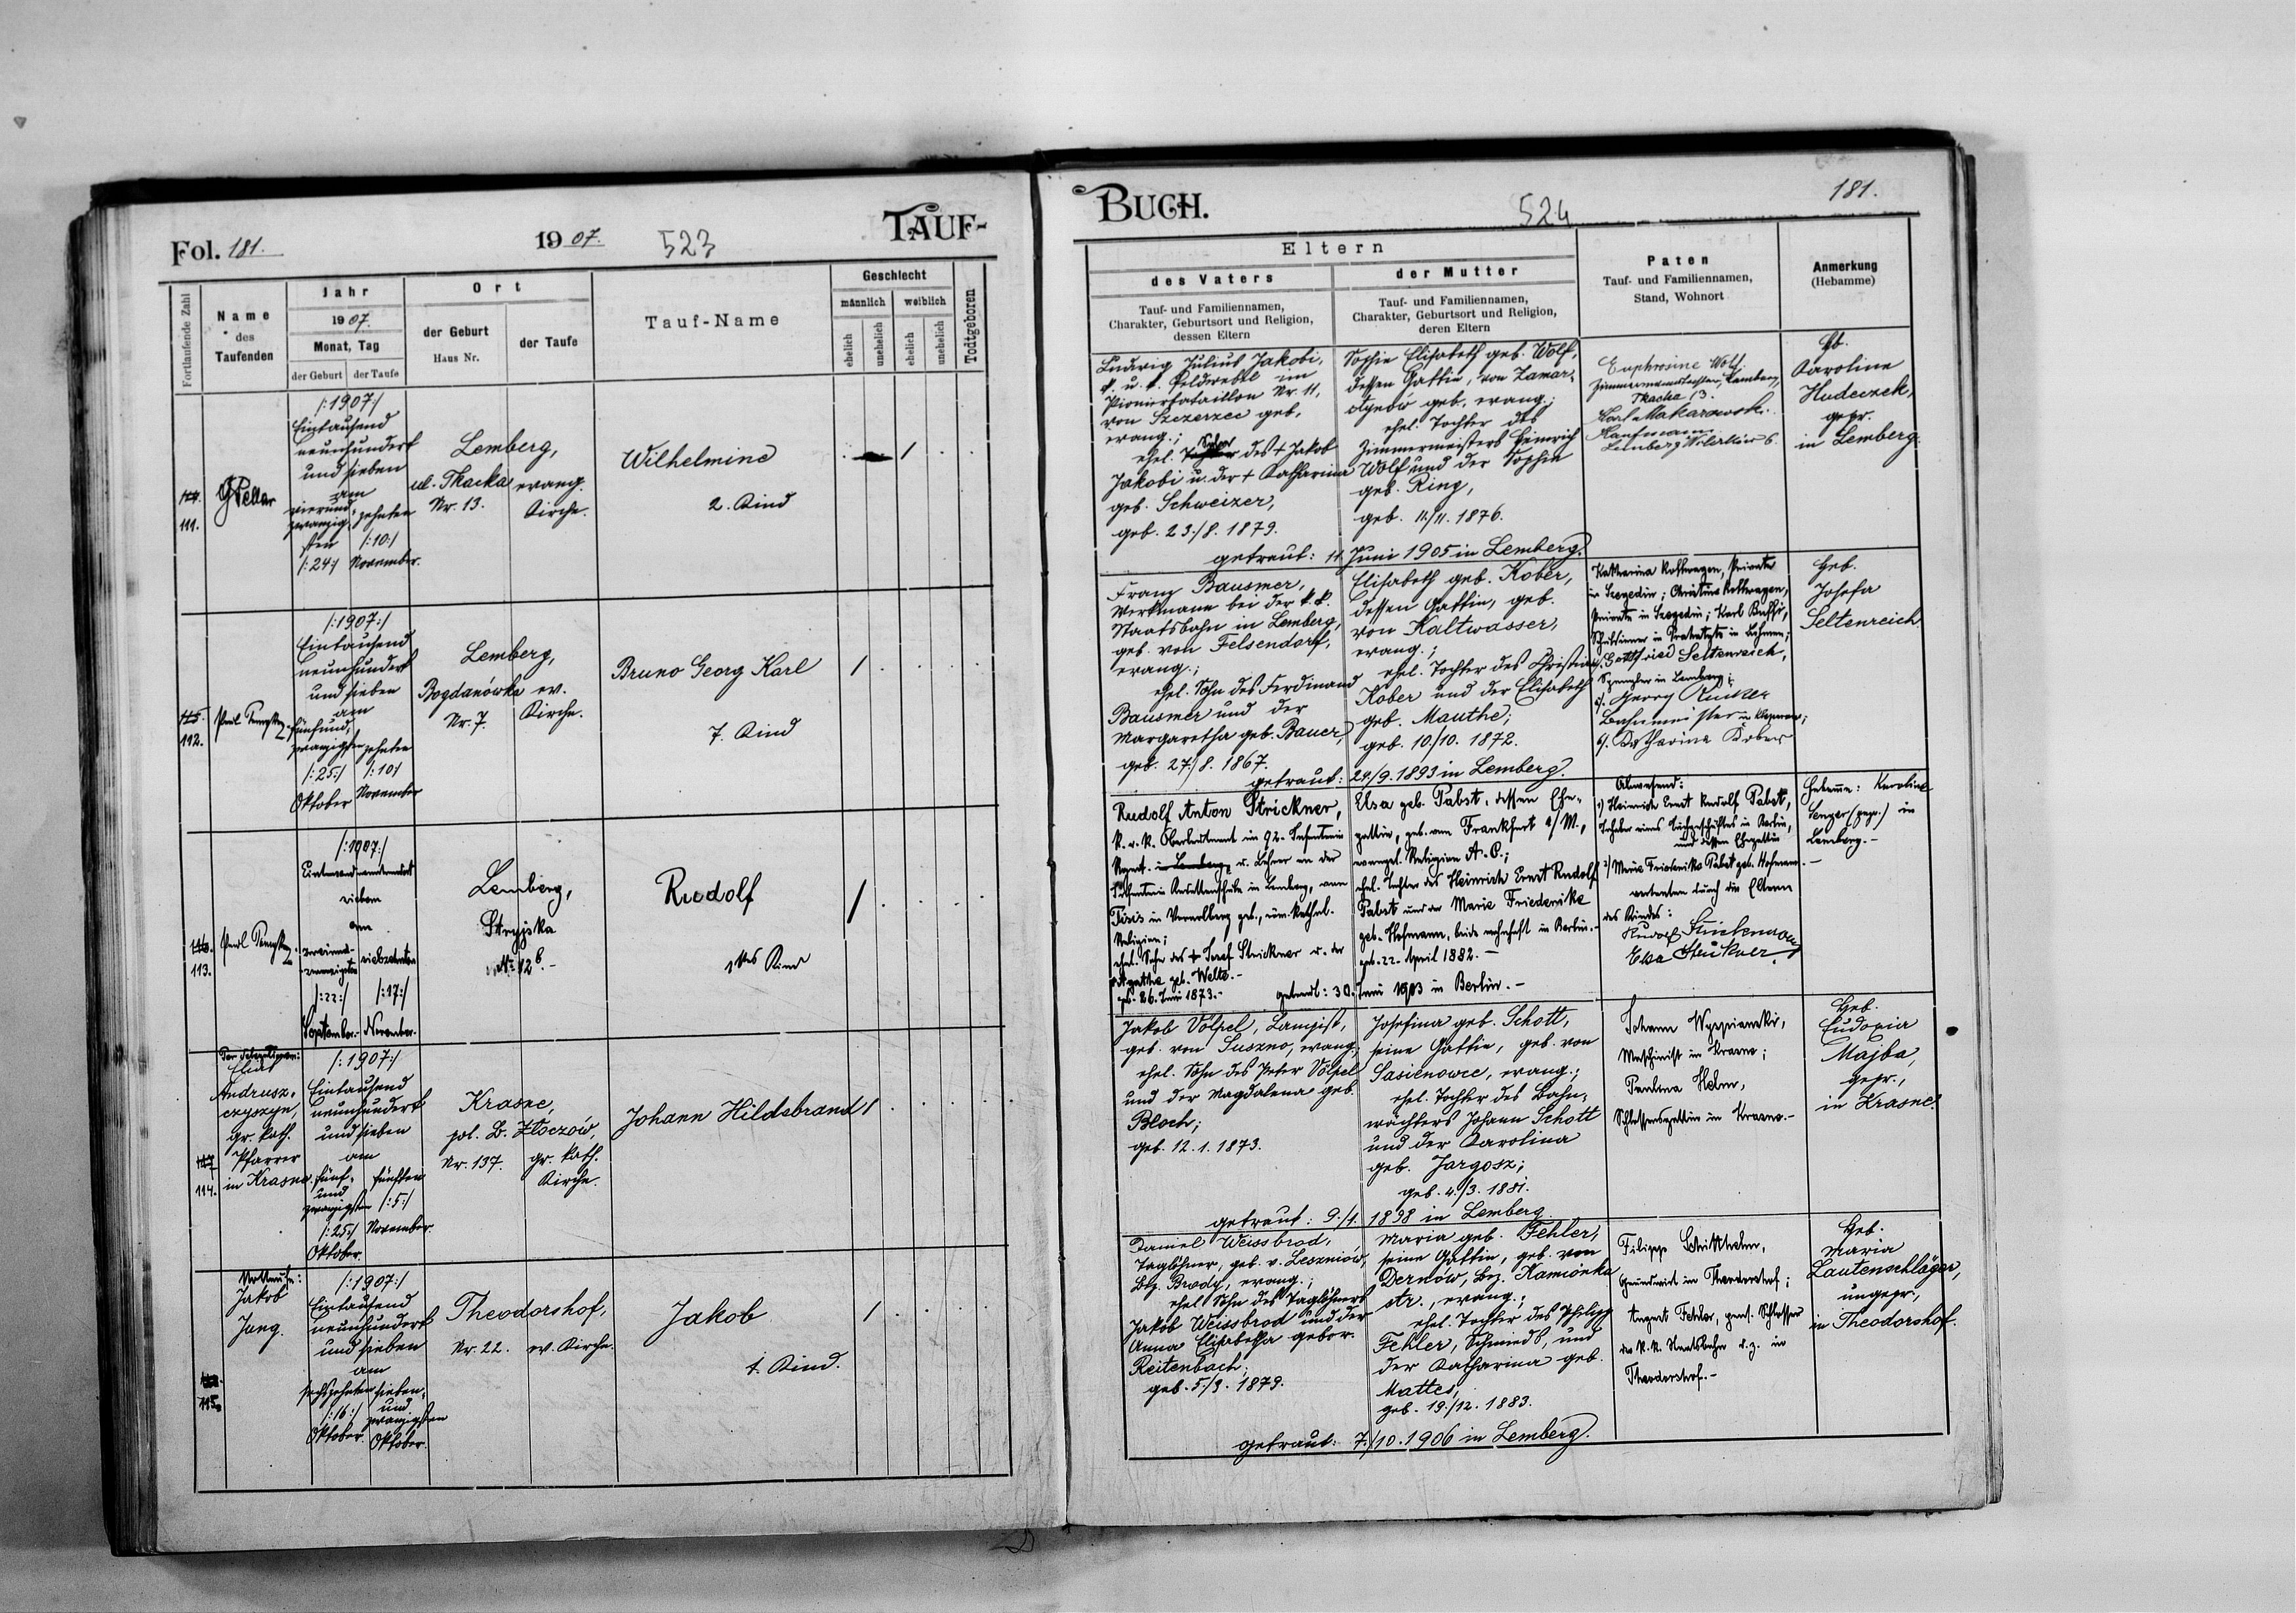 Fol. 181.
1907.
523
TAUF-
Fortlaufende Zahl
Name
des
Taufenden
Jahr
1907.
Monat, Tag
der Geburt
der Taufe
Ort
der Geburt
Haus Nr.
der Taufe
Tauf-Name
Geschlecht
männlich
weiblich
ehelich
unehelich
ehelich
unehelich
Todtgeboren
111.
/:1907:/
Eintausend
neunhundert
und sieben
am
vierund-
zwanzig-
sten
/:24:/
zehnten
/:10:/
November.
Lemberg,
ul. Tkacka
Nr. 13.
evang.
Kirche.
Wilhelmine
2. Kind
1
112.
/:1907:/
Eintausend
neunhundert
und sieben
am
fünfund-
zwanzigsten
/:25:/
Oktober
zehnten
/:10:/
November
Lemberg,
Bogdanówka
Nr. 7.
ev.
Kirche.
Bruno Georg Karl
7. Kind
1
113.
/:1907:/
sieben
am
/:22:/
September.-
siebzehnten
/:17:/
November.
Lemberg,
Stryjska
№ 12b.-
Rudolf
1tes Kind
1
114.
Elias
Andrusz-
czyszyn,
gr. kath.
Pfarrer
in Krasne.
/:1907:/
Eintausend
neunhundert
und sieben
am
fünf-
und
zwanzigsten
/:25:/
Oktober.
fünften
/:5:/
November.
Krasne,
pol. B. Złoczów,
Nr. 137.
gr. kath.
Kirche.
Johann Hildebrand
1
115.
Jakob
Jung.
/:1907:/
Eintausend
neunhundert
und sieben
am
sechszehnten
/:16:/
Oktober.
sieben-
und
zwanzigsten
Oktober.
Theodorshof,
Nr. 22.
ev. Kirche.
Jakob
1. Kind.
1
BUCH.
524
181.
Eltern
des Vaters
Tauf- und Familiennamen,
Charakter, Geburtsort und Religion,
dessen Eltern
der Mutter
Tauf- und Familiennamen,
Charakter, Geburtsort und Religion,
deren Eltern
Paten
Tauf- und Familiennamen,
Stand, Wohnort
Anmerkung
(Hebamme)
Ludwig Julius Jakobi,
k. u. k. Feldwebel im
Pionierbataillon Nr. 11,
von Szczerzec geb.
evang.;
ehel. Sohn des † Jakob
Jakobi u. der † Katharina
geb. Schweizer,
geb. 23./8. 1879.
Sophie Elisabeth geb. Wolf,
dessen Gattin, von Zamar-
stynów geb. evang.;
ehel. Tochter des
Zimmermeisters Heinrich
Wolf und der Sophie
geb. Ring,
geb. 11./11. 1876.
getraut: 11. Juni 1905 in Lemberg.
Euphrosine Wolf
Zimmermannstochter, Lemberg,
Tkacka 13.
Karl Makarowsk.
Kaufmann
Lemberg
Hb.
Karoline
Hudeczek,
gepr.
in Lemberg.
Franz Bausmer,
Werkmann bei der k. k.
Staatsbahn in Lemberg,
geb. von Felsendorf,
evang.;
ehel. Sohn des Ferdinand
Bausmer und der
Margaretha geb. Bauer,
geb. 27./8. 1867.
Elisabeth geb. Kober,
dessen Gattin, geb.
von Kaltwasser,
evang.;
ehel. Tochter des Christian
Kober und der Elisabeth
geb. Mauthe;
geb. 10./10. 1872.
getraut: 24./9. 1893 in Lemberg.
Katharina Rottwagen, Private
in Szegedin; Christine Rottwagen,
Private in Szegedin; Karl
Gottfried Seltenreich,
in Lemberg;
Georg
Bahnmeister in Kleparow;
6/. Katharina Kober
Heb.
Josefa
Seltenreich
Rudolf Anton Strickner,
k. u. k. Oberleutnant im 92. Infanterie
Regmt. in Lemberg, u. Lehrer an der
Infanterie Kadettenschule in Lemberg, von
Tisis in Vorarlberg geb., röm. kathol.
Religion;
ehel. Sohn des † Josef Strickner u. der
Agathe geb. Welte.-
geb. 26. Juni 1873.-
Elsa geb. Pabst, dessen Ehe-
gattin, geb. von Frankfurt a/M.,
evangel. Religion A. C.;
ehel. Tochter des Heinrich Ernst Rudolf
Pabst und der Marie Friederike
geb. Hofmann, beide wohnhaft in Berlin.-
geb. 22. April 1882.-
getraut: 30. Juni 1903 in Berlin.-
Abwesend:
1) Heinrich Ernst Rudolf Pabst,
Inhaber eines in Berlin,
und dessen Ehegattin
2) Marie Friederike Pabst geb. Hofmann.-
vertreten durch die Eltern
des Kindes:
Rudolf Strickner
Elsa Strickner
Hebamme: Karoline
Senger (gepr.) in
Lemberg.-
Jakob Völpel, Lampist,
geb. von Suszno, evang.,
ehel. Sohn des Peter Völpel
und der Magdalena geb.
Bloch;
geb. 12. 1. 1873.
Josefina geb. Schott,
seine Gattin, geb. von
Sasienowce, evang.;
ehel. Tochter des Bahn-
wächters Johann Schott
und der Karolina
geb. Jargosz;
geb. 4./3. 1881.
getraut: 9./1. 1898 in Lemberg
Johann Wyspianski,
Maschinist in Krasne;
Paulina Helm,
Schlossersgattin in Krasne.-
Heb.
Eudoxia
Majba,
gepr.,
in Krasne.
Daniel Weissbrod,
Taglöhner, geb. v. Leszniów,
Bez. Brody, evang.;
ehel. Sohn des Taglöhners
Jakob Weissbrod und der
Anna Elisabetha gebor.
Reitenbach;
geb. 5/3. 1879.
Maria geb. Fehler,
seine Gattin, geb. von
Dernów, Bez. Kamionka
str., evang.;
ehel. Tochter des Philipp
Fehler, Schmieds, und
der Katharina geb.
Mattes;
geb. 19./12. 1883.
getraut: 7./10. 1906 in Lemberg.
Filipp
Grundwirt in Theodorshof;
August Fehler, pens. Schlosser
der k. k. Staatsbahn d. z. in
Theodorshof.-
Heb.
Maria
Lautenschläger,
ungepr.,
in Theodorshof.